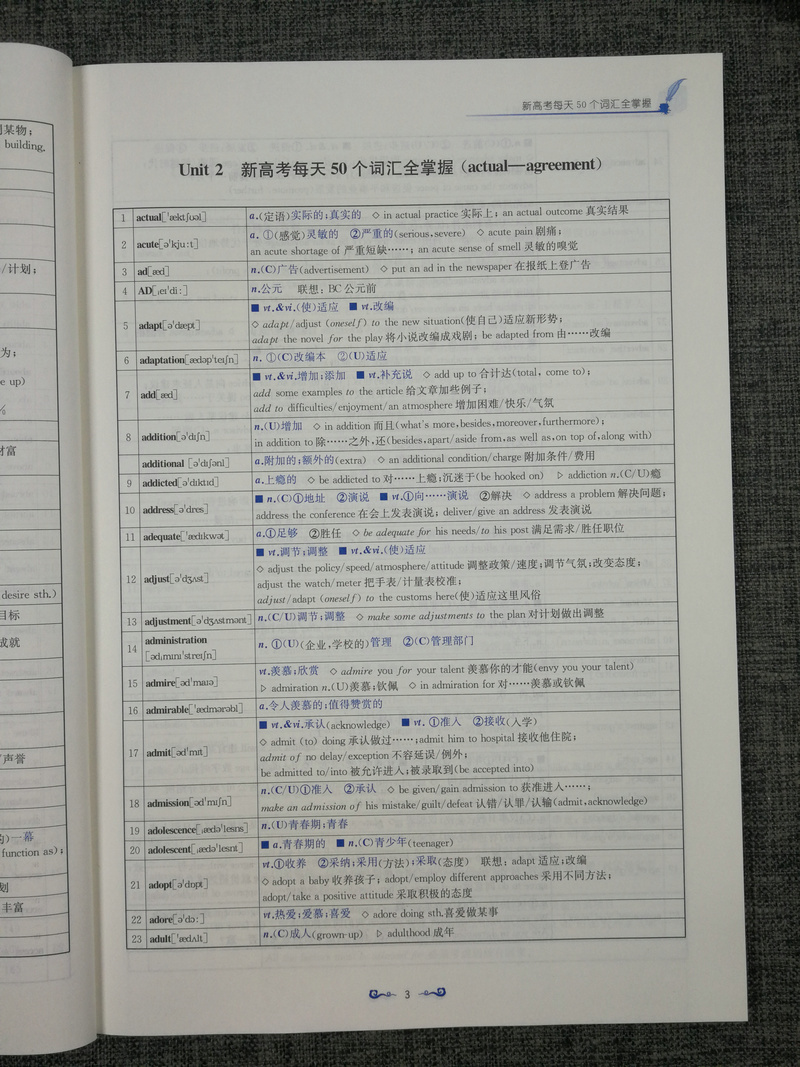 到某物；
building,
/计划；
为；
e up)
%
财富
desire sth.)
目标
成就
声誉
的)一幕
function as)；
划
丰富
新高考每天 50 个词汇全掌握
Unit 2 新高考每天 50 个词汇全掌握（actual—agreement）
1 actual[ˈæktʃuəl] a.(定语)实际的；真实的 ◇ in actual practice 实际上；an actual outcome 真实结果
2 acute[əˈkjuːt] a. ①(感觉)灵敏的 ②严重的(serious, severe) ◇ acute pain 剧痛；
an acute shortage of 严重短缺……；an acute sense of smell 灵敏的嗅觉
3 ad[æd] n.(C)广告(advertisement) ◇ put an ad in the newspaper 在报纸上登广告
4 AD[ˌeɪˈdiː] n.公元 联想：BC 公元前
5 adapt[əˈdæpt] ■ vt.&vi.(使)适应 ■ vt.改编
◇ adapt/adjust (oneself) to the new situation(使自己)适应新形势；
adapt the novel for the play 将小说改编成戏剧；be adapted from 由……改编
6 adaptation[ædəpˈteɪʃn] n. ①(C)改编本 ②(U)适应
7 add[æd] ■ vt.&vi.增加；添加 ■ vt.补充说 ◇ add up to 合计达(total, come to)；
add some examples to the article 给文章加些例子；
add to difficulties/enjoyment/an atmosphere 增加困难/快乐/气氛
8 addition[əˈdɪʃn] n.(U)增加 ◇ in addition 而且(what's more, besides, moreover, furthermore)；
in addition to 除……之外，还(besides, apart/aside from, as well as, on top of, along with)
additional [əˈdɪʃənl] a.附加的；额外的(extra) ◇ an additional condition/charge 附加条件/费用
9 addicted[əˈdɪktɪd] a.上瘾的 ◇ be addicted to 对……上瘾；沉迷于(be hooked on) ▷ addiction n.(C/U)瘾
10 address[əˈdres] ■ n.(C)①地址 ②演说 ■ vt.①向……演说 ②解决 ◇ address a problem 解决问题；
address the conference 在会上发表演说；deliver/give an address 发表演说
11 adequate[ˈædɪkwət] a.①足够 ②胜任 ◇ be adequate for his needs/to his post 满足需求/胜任职位
12 adjust[əˈdʒʌst] ■ vt.调节；调整 ■ vt.&vi.(使)适应
◇ adjust the policy/speed/atmosphere/attitude 调整政策/速度；调节气氛；改变态度；
adjust the watch/meter 把手表/计量表校准；
adjust/adapt (oneself) to the customs here(使)适应这里风俗
13 adjustment[əˈdʒʌstmənt] n.(C/U)调节；调整 ◇ make some adjustments to the plan 对计划做出调整
14 administration n. ①(U)(企业,学校的)管理 ②(C)管理部门
[ədˌmɪnɪˈstreɪʃn]
15 admire[ədˈmaɪə] vt.羡慕；欣赏 ◇ admire you for your talent 羡慕你的才能(envy you your talent)
▷ admiration n.(U)羡慕；钦佩 ◇ in admiration for 对……羡慕或钦佩
16 admirable[ˈædmərəbl] a.令人羡慕的；值得赞赏的
17 admit[ədˈmɪt] ■ vt.&vi.承认(acknowledge) ■ vt. ①准入 ②接收(入学)
◇ admit (to) doing 承认做过……；admit him to hospital 接收他住院；
admit of no delay/exception 不容延误/例外；
be admitted to/into 被允许进入；被录取到(be accepted into)
18 admission[ədˈmɪʃn] n.(C/U)①准入 ②承认 ◇ be given/gain admission to 获准进入……；
make an admission of his mistake/guilt/defeat 认错/认罪/认输(admit, acknowledge)
19 adolescence[ˌædəˈlesns] n.(U)青春期；青春
20 adolescent[ˌædəˈlesnt] ■ a.青春期的 ■ n.(C)青少年(teenager)
21 adopt[əˈdɒpt] vt.①收养 ②采纳；采用(方法)；采取(态度) 联想：adapt 适应；改编
◇ adopt a baby 收养孩子；adopt/employ different approaches 采用不同方法；
adopt/take a positive attitude 采取积极的态度
22 adore[əˈdɔː] vt.热爱；爱慕；喜爱 ◇ adore doing sth.喜爱做某事
23 adult[ˈædʌlt] n.(C)成人(grown-up) ▷ adulthood 成年
3